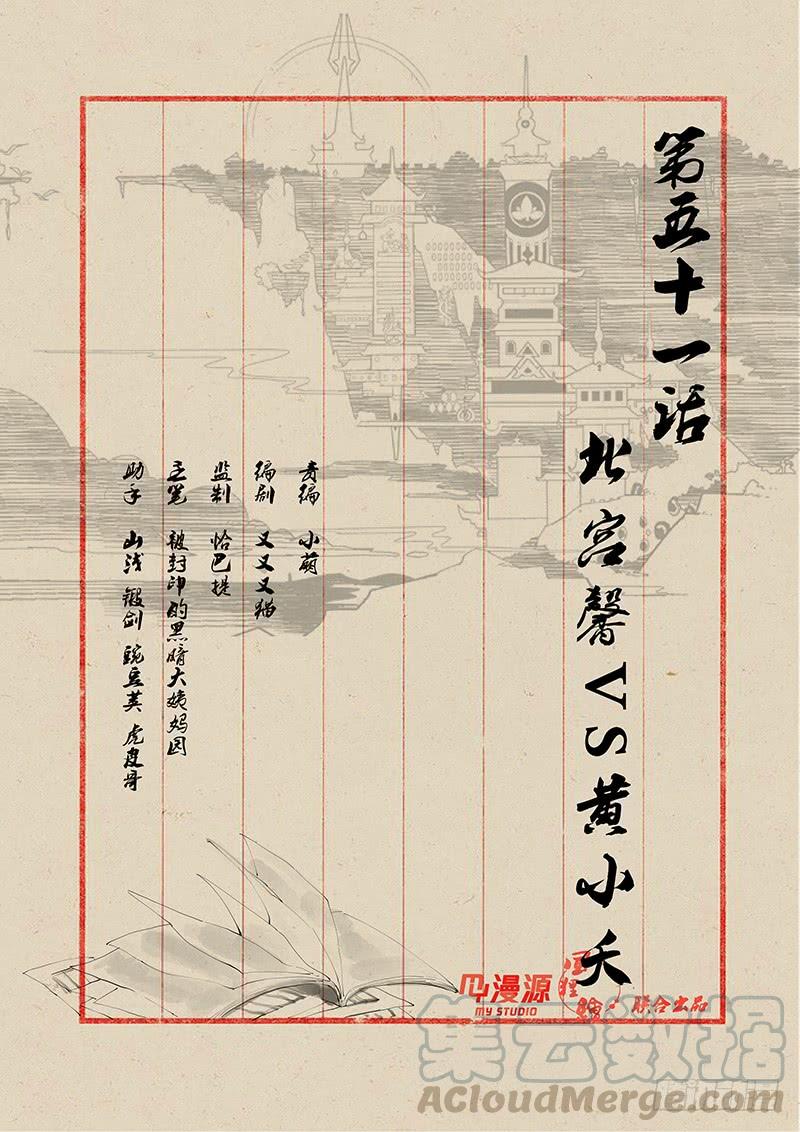 第五十一话
北宫馨VS黄小夭
责编 小萌
编剧 又又又猫
监制 恰巴提
主笔 被封印的黑暗大姨妈园
助手 山浅 锻剑 豌豆荚 虎皮哥
漫源
MY STUDIO
联合出品
集云数据
ACloudMerge.com